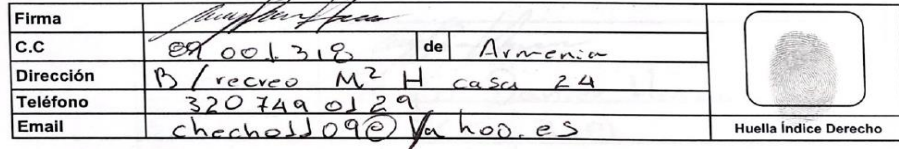 Firma
C.C 89 001.318 de Armenia
Dirección B/recreo Mz H casa 24
Teléfono 320 749 0129
Email checho1109@Yahoo.es
Huella Índice Derecho